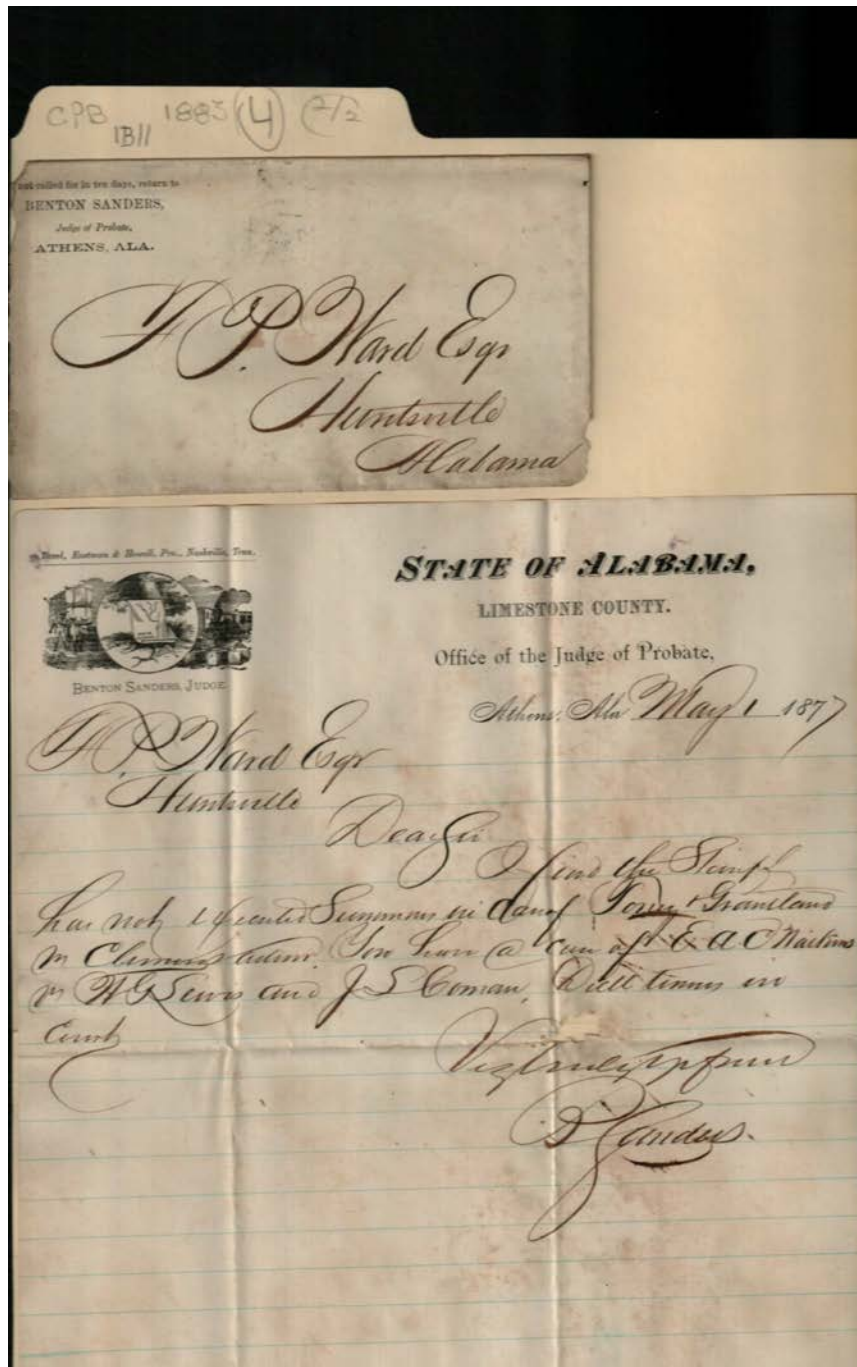 CPB 1883 4 2/2
1B11
not called for in ten days, return to
BENTON SANDERS,
Judge of Probate,
ATHENS, ALA.
P. Ward Esqr
Huntsville
Alabama
Eastman & Howell, Prs., Nashville, Tenn.
STATE OF ALABAMA,
LIMESTONE COUNTY.
Office of the Judge of Probate,
BENTON SANDERS, JUDGE
Athens, Ala May 1 1877
P. Ward Esqr
Huntsville
Dear Sir
I find the
has not executed Summons in
vs Clemens You have a case of E A C
vs and J L Coman, in
Court
Very truly
B Sanders.